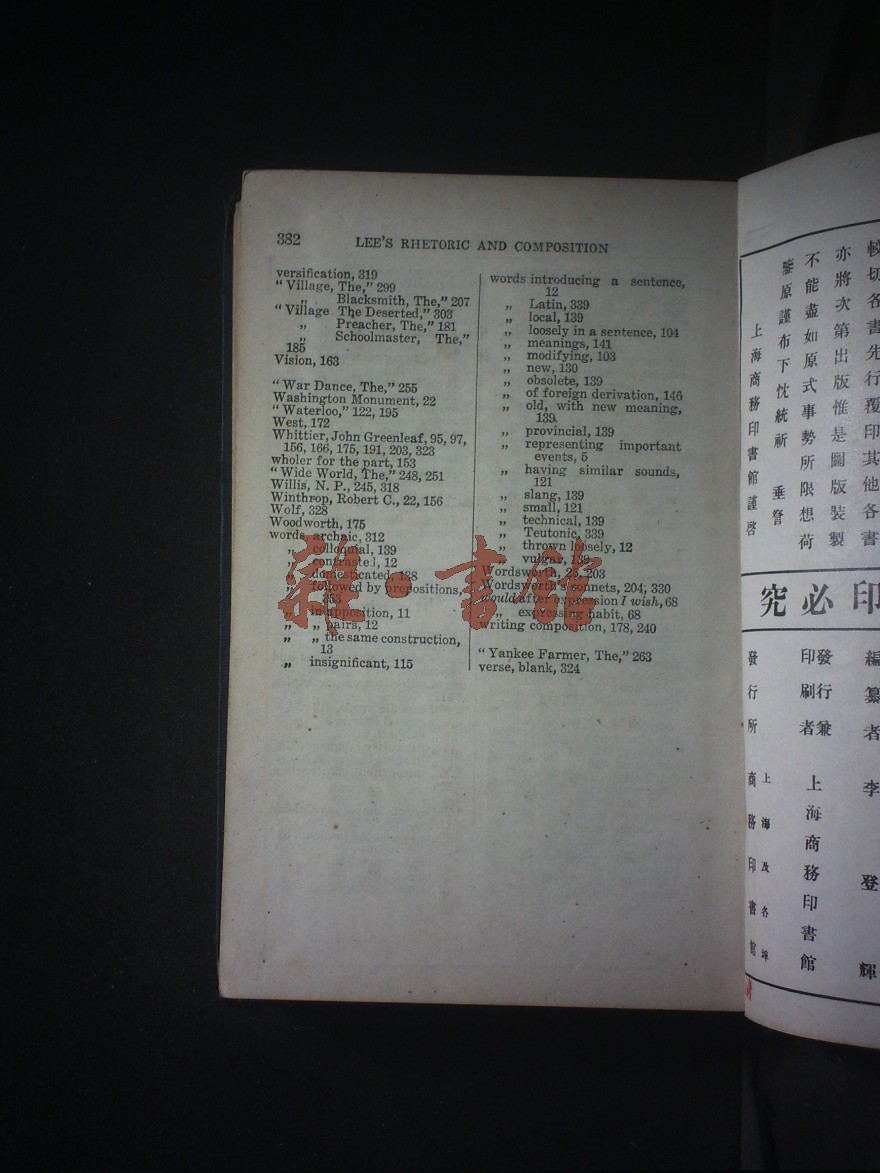 382
LEE'S RHETORIC AND COMPOSITION
versification, 319
"Village, The," 299
„ Blacksmith, The," 207
"Village The Deserted," 303
„ Preacher, The," 181
„ Schoolmaster, The,"
185
Vision, 163
"War Dance, The," 255
Washington Monument, 22
"Waterloo," 122, 195
West, 172
Whittier, John Greenleaf, 95, 97,
156, 166, 175, 191, 203, 323
wholer for the part, 153
"Wide World, The," 248, 251
Willis, N. P., 245, 318
Winthrop, Robert C., 22, 156
Wolf, 328
Woodworth, 175
words, archaic, 312
„ colloquial, 139
„ contrasted, 12
„ domesticated, 138
„ followed by prepositions,
353
„ in apposition, 11
„ „ pairs, 12
„ „ the same construction,
13
„ insignificant, 115
words introducing a sentence,
12
„ Latin, 339
„ local, 139
„ loosely in a sentence, 104
„ meanings, 141
„ modifying, 103
„ new, 130
„ obsolete, 139
„ of foreign derivation, 146
„ old, with new meaning,
139.
„ provincial, 139
„ representing important
events, 5
„ having similar sounds,
121
„ slang, 139
„ small, 121
„ technical, 139
„ Teutonic, 339
„ thrown loosely, 12
„ vulgar, 139
Wordsworth, 25, 203
Wordsworth's sonnets, 204, 330
would after expression I wish, 68
„ expressing habit, 68
writing composition, 178, 240
"Yankee Farmer, The," 263
verse, blank, 324
較切各書先行覆印其他各書
亦將次第出版惟是圖版裝製
不能盡如原式事勢所限想荷
鑒原謹布下忱統祈 垂詧
上海商務印書館謹啓
印必究
編纂者 李登輝
發行兼
印刷者 上海商務印書館
發行所 上海及各埠
商務印書館
雜書館